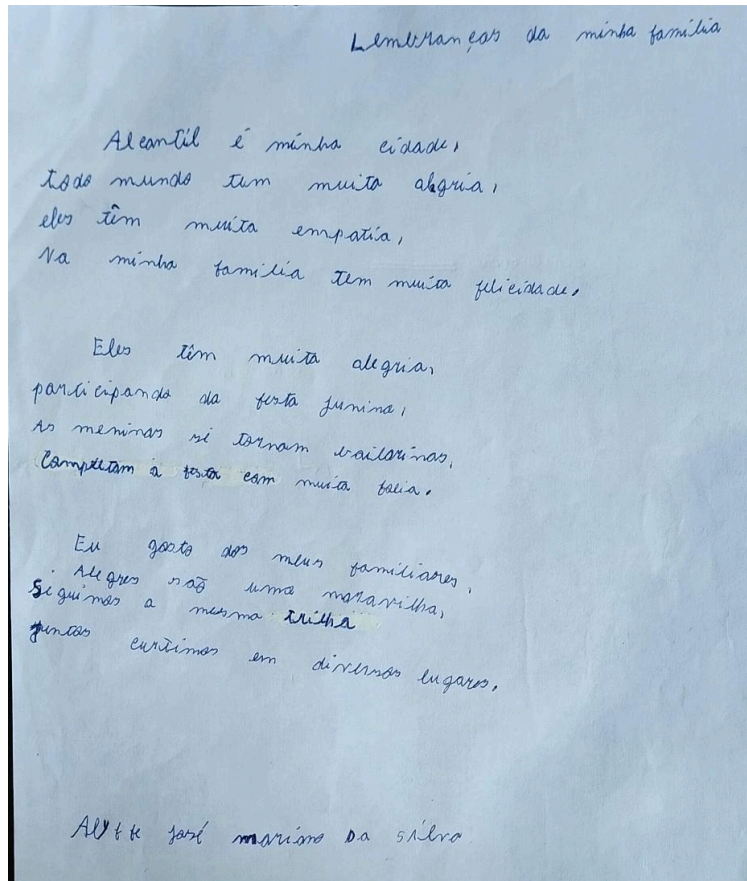 Lembranças da minha família
Alcantil é minha cidade,
todo mundo tem muita alegria,
eles têm muita empatia,
Na minha familia tem muita felicidade.
Eles têm muita alegria,
participando da festa junina,
As meninas si tornam bailarinas,
Completam a festa com muita folia.
Eu gosto dos meus familiares,
Alegres são uma maravilha,
Siguimos a mesma trilha
juntos curtimos em diversos lugares.
josé mariano Da silva